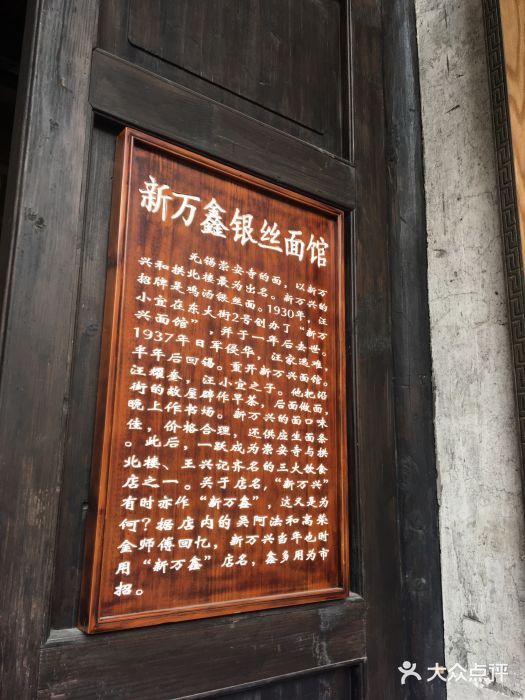 新万鑫银丝面馆
无锡崇安寺的面，以新万
兴和拱北楼最为出名。新万兴的
招牌是鸡汤银丝面。1930年，汪
小宜在东大街2号创办了“新万
兴面馆”，并于一年后去世。
1937年日军侵华，汪家逃难，
半年后回锡。重开新万兴面馆。
汪耀奎，汪小宜之子。他把沿
街的敞屋辟作早茶，后面做面，
晚上作书场。新万兴的面口味
佳，价格合理，还供应生面条
。此后，一跃成为崇安寺与拱
北楼、王兴记齐名的三大饮食
店之一。关于店名，“新万兴”
有时亦作“新万鑫”，这又是为
何？据店内的吴阿法和高荣
金师傅回忆，新万兴当年也时
用“新万鑫”店名，鑫多用为市
招。
大众点评